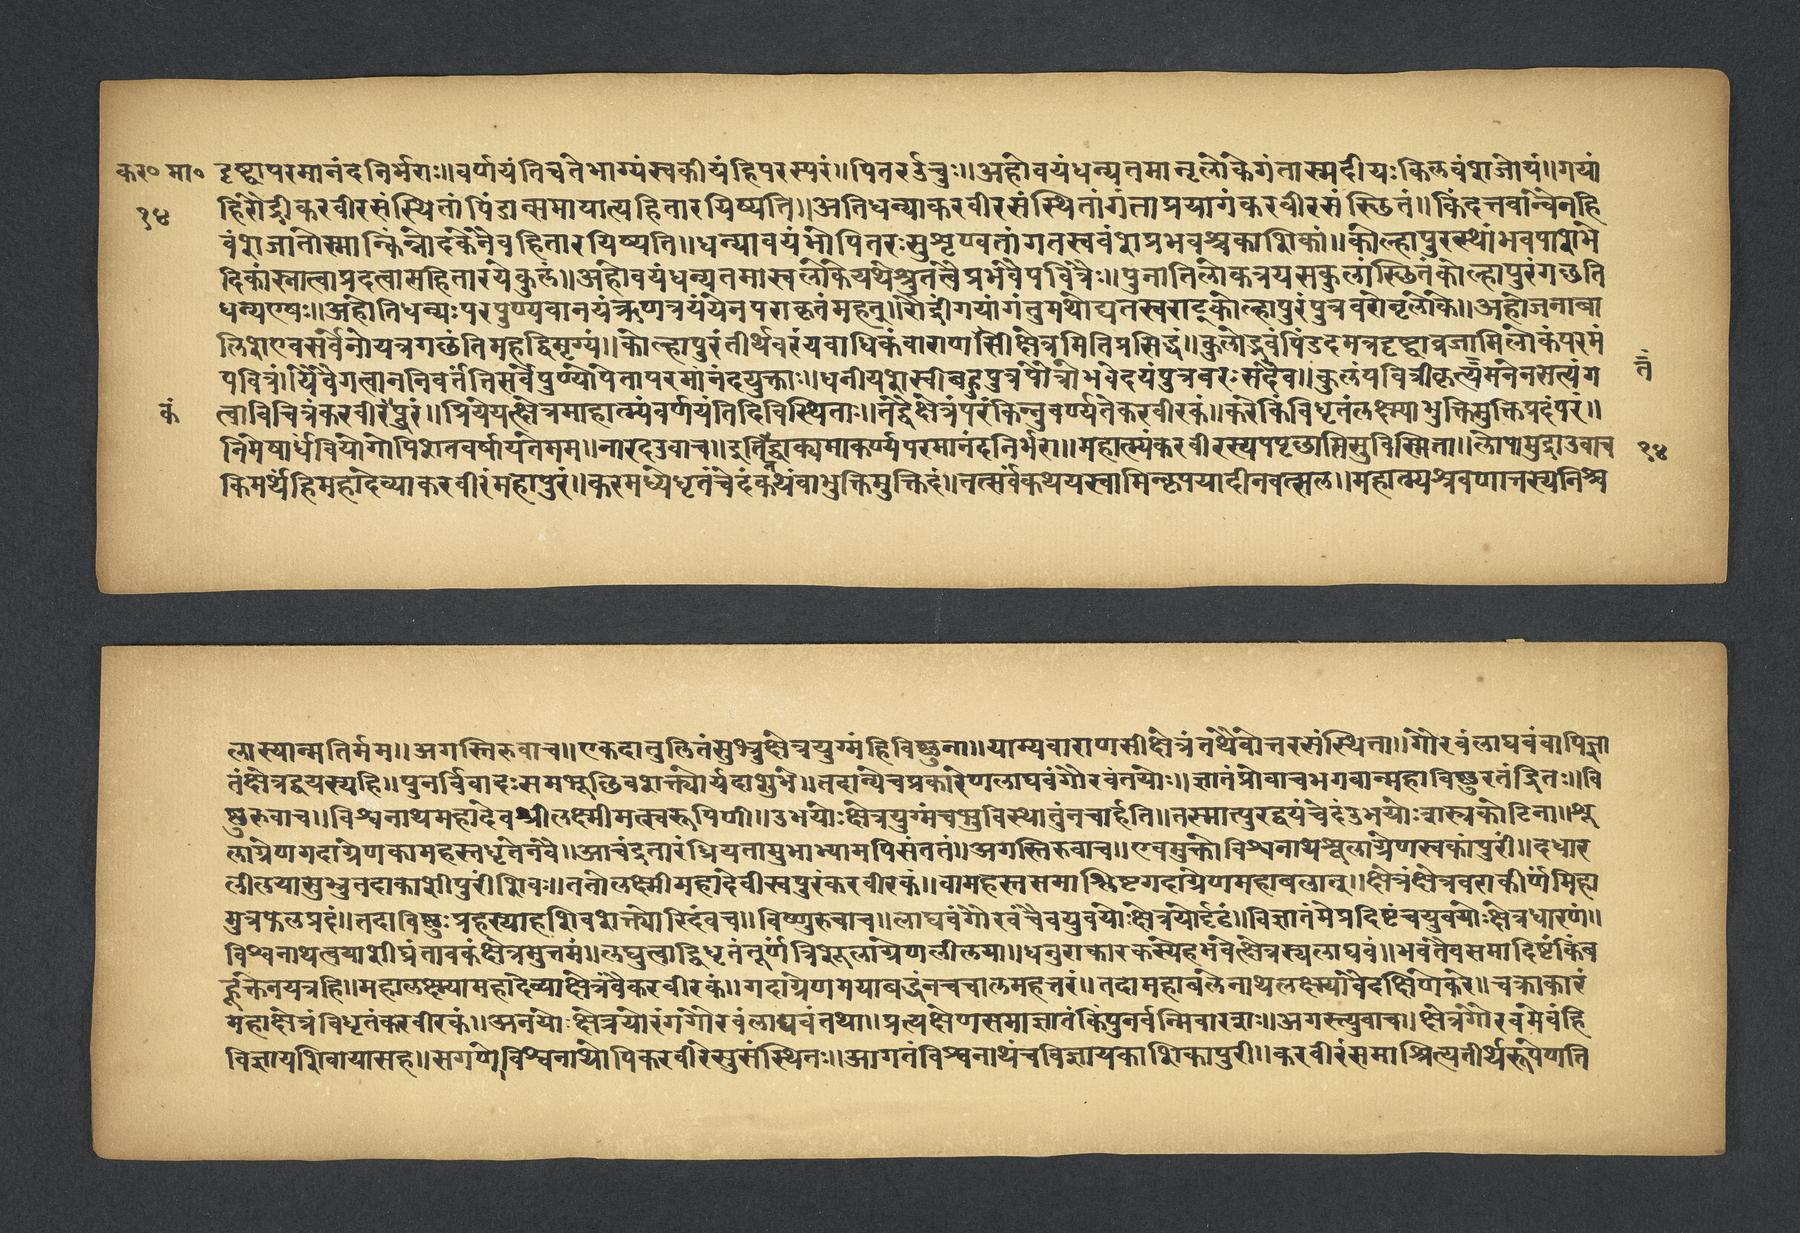 कर० मा० दृष्ट्वापरमानंदनिर्भराः॥वर्णयंतिचतेभाग्यंस्वकीयंहिपरस्परं॥पितरऊचुः॥अहोवयंधन्यतमानृलोकेगंतास्मदीयःकिलवंशजोयं॥गयां
१४ हिरौद्रीकरवीरसंस्थितांपिंडान्समायात्यहितारयिष्यति॥अतिधन्याकरवीरसंस्थितांगंताप्रयागंकरवीरसंस्छितं॥किंदत्तवांन्वेनहि
वंशेजातोस्मान्किंन्नोदकेनैवहितारयिष्यति॥धन्यावयंभोपितरःसुशृण्वतांगतस्ववंशप्रभवश्चकाशिकां॥कोल्हापुरस्थांभवपाशभे
दिकांस्नात्वाप्रदत्वासहितारयेकुलं॥अहोवयंधन्यतमास्वलोकेयथेश्रुतत्वेप्रभवेपवित्रैः॥पुनातिलोकत्रयसकुलांस्छितंकोल्हापुरंगछति
धन्यएषः॥अहोतिधन्यःपरपुण्यवानयंऋणत्रयंयेनपराकृतंमहत्॥रौद्रींगयांगंतुमथोद्यतस्वराट्कोल्हापुरंपुत्रवरोनृलोके॥अहोजनाबा
लिशएवसर्वेनोयत्रगछंतिमहद्विमृग्यं॥कोल्हापुरंतीर्थवरंयवाधिकंवाराणसीक्षेत्रमितिप्रसिद्धं॥कुलोद्भवंपिंडदमत्रदृष्ट्वाव्रजामिलोकंपरमं
पवित्रं।येवैगत्वाननिवर्तंतिसर्वेपुण्योपेतापरमानंदयुक्ताः॥धनीयशस्वीबहुपुत्रपौत्रोभवेदयंपुत्रवरःसदैव॥कुलंपवित्रीकृत्यमनेनसत्यंग
त्वाविचित्रंकरवीरंपुरं॥प्रियेयत्क्षेत्रमाहात्म्यंवर्णयंतिदिविस्थिताः॥नंदैक्षेत्रंपरंकिन्नुवर्ण्यतेकरवीरकं॥करेकिंविधृतंलक्ष्म्याभुक्तिमुक्तिप्रदंपरं॥
निमेषार्धवियोगोपिशतवर्षायतेमम॥नारदउवाच॥इतितद्वाक्यमाकर्ण्यपरमानंदनिर्भरा॥महात्म्यंकरवीरस्यपपृछामिसुविस्मिता॥लोपामुद्राउवाच १४
किमर्थंहिमहादेव्याकरवीरंमहापुरं॥करमध्येधृतंचेदंकथंवाभुक्तिमुक्तिदं॥तत्सर्वंकथयस्वामिन्कृपयादीनवत्सल॥महात्म्यश्रवणात्तस्यनिश्च
लास्यान्मतिर्मम॥अगस्तिरुवाच॥एकदातुलितंसुभ्रुक्षेत्रयुग्मंहिविष्णुना॥याम्यवाराणसीक्षेत्रंतथैवोत्तरसंस्थिता॥गौरवंलाघवंवापिज्ञा
तंक्षेत्रद्वयस्यहि॥पुनर्विवादःसमभूछिवशक्त्योर्यदाशुभे॥तदान्येचप्रकारेणलाघवंगौरवंतयोः॥ज्ञातंप्रोवाचभगवान्महाविष्णुरतंद्रितः॥वि
ष्णुरुवाच॥विश्वनाथमहादेवश्रीलक्ष्मीमत्स्वरूपिणी॥उभयोःक्षेत्रयुग्मंचभुविस्थातुंनचार्हति॥तस्मात्पुरद्वयंचेदंउभयोःशस्त्रकोटिना॥शू
लाग्रेणगदाग्रेणकामहस्तधृतेनवै॥आचंद्रतारंध्रियतामुभाभ्यामपिसंततं॥अगस्तिरुवाच॥एवमुक्तोविश्वनाथशूलाग्रेणस्वकांपुरीं॥दधार
लीलयासुभ्रुतदाकाशीपुरींशिवः॥ततोलक्ष्मीमहादेवीस्वपुरंकरवीरकं॥वामहस्तसमाश्लिष्टगदाग्रेणमहाबलात्॥क्षेत्रंक्षेत्रवराकीर्णमिहा
मुत्रफलप्रदं॥तदाविष्णुःप्रहस्याहशिवशक्त्योरिदंवच॥विष्णुरुवाच॥लाघवंगौरवंचैवयुवयोःक्षेत्रयोर्दृढं॥विज्ञातंमेप्रदिष्टंचयुवयोःक्षेत्रधारणं॥
विश्वनाथत्वयाशीघ्रंतावकंक्षेत्रमुत्तमं॥लघुत्वाद्विधृतंतूर्णंत्रिशूलाग्रेणलीलया॥धनुराकारकस्येहभवेत्क्षेत्रस्यलाघवं॥भवंतैवसमादिष्टंकिंब
हूक्तेनयत्रहि॥महालक्ष्म्यामहादेव्याक्षेत्रंवैकरवीरकं॥गदाग्रेणमयाबद्धंनचचालमहत्तरं॥तदामहाबलेनाथलक्ष्म्यावैदक्षिणेकरे॥चक्राकारं
महाक्षेत्रंविधृतंकरवीरकं॥अनयोःक्षेत्रयोरंगगौरवंलाघवंतथा॥प्रत्यक्षेणसमाज्ञातंकिंपुनर्वन्मिवारवाः॥अगस्त्युवाच॥क्षेत्रंगौरवमेवंहि
विज्ञायशिवायासह॥सगणोविश्वनाथोपिकरवीरेसुसंस्थितः॥आगतंविश्वनाथंचविज्ञायकाशिकापुरी॥करवीरंसमाश्रित्यतीर्थरूपेणति